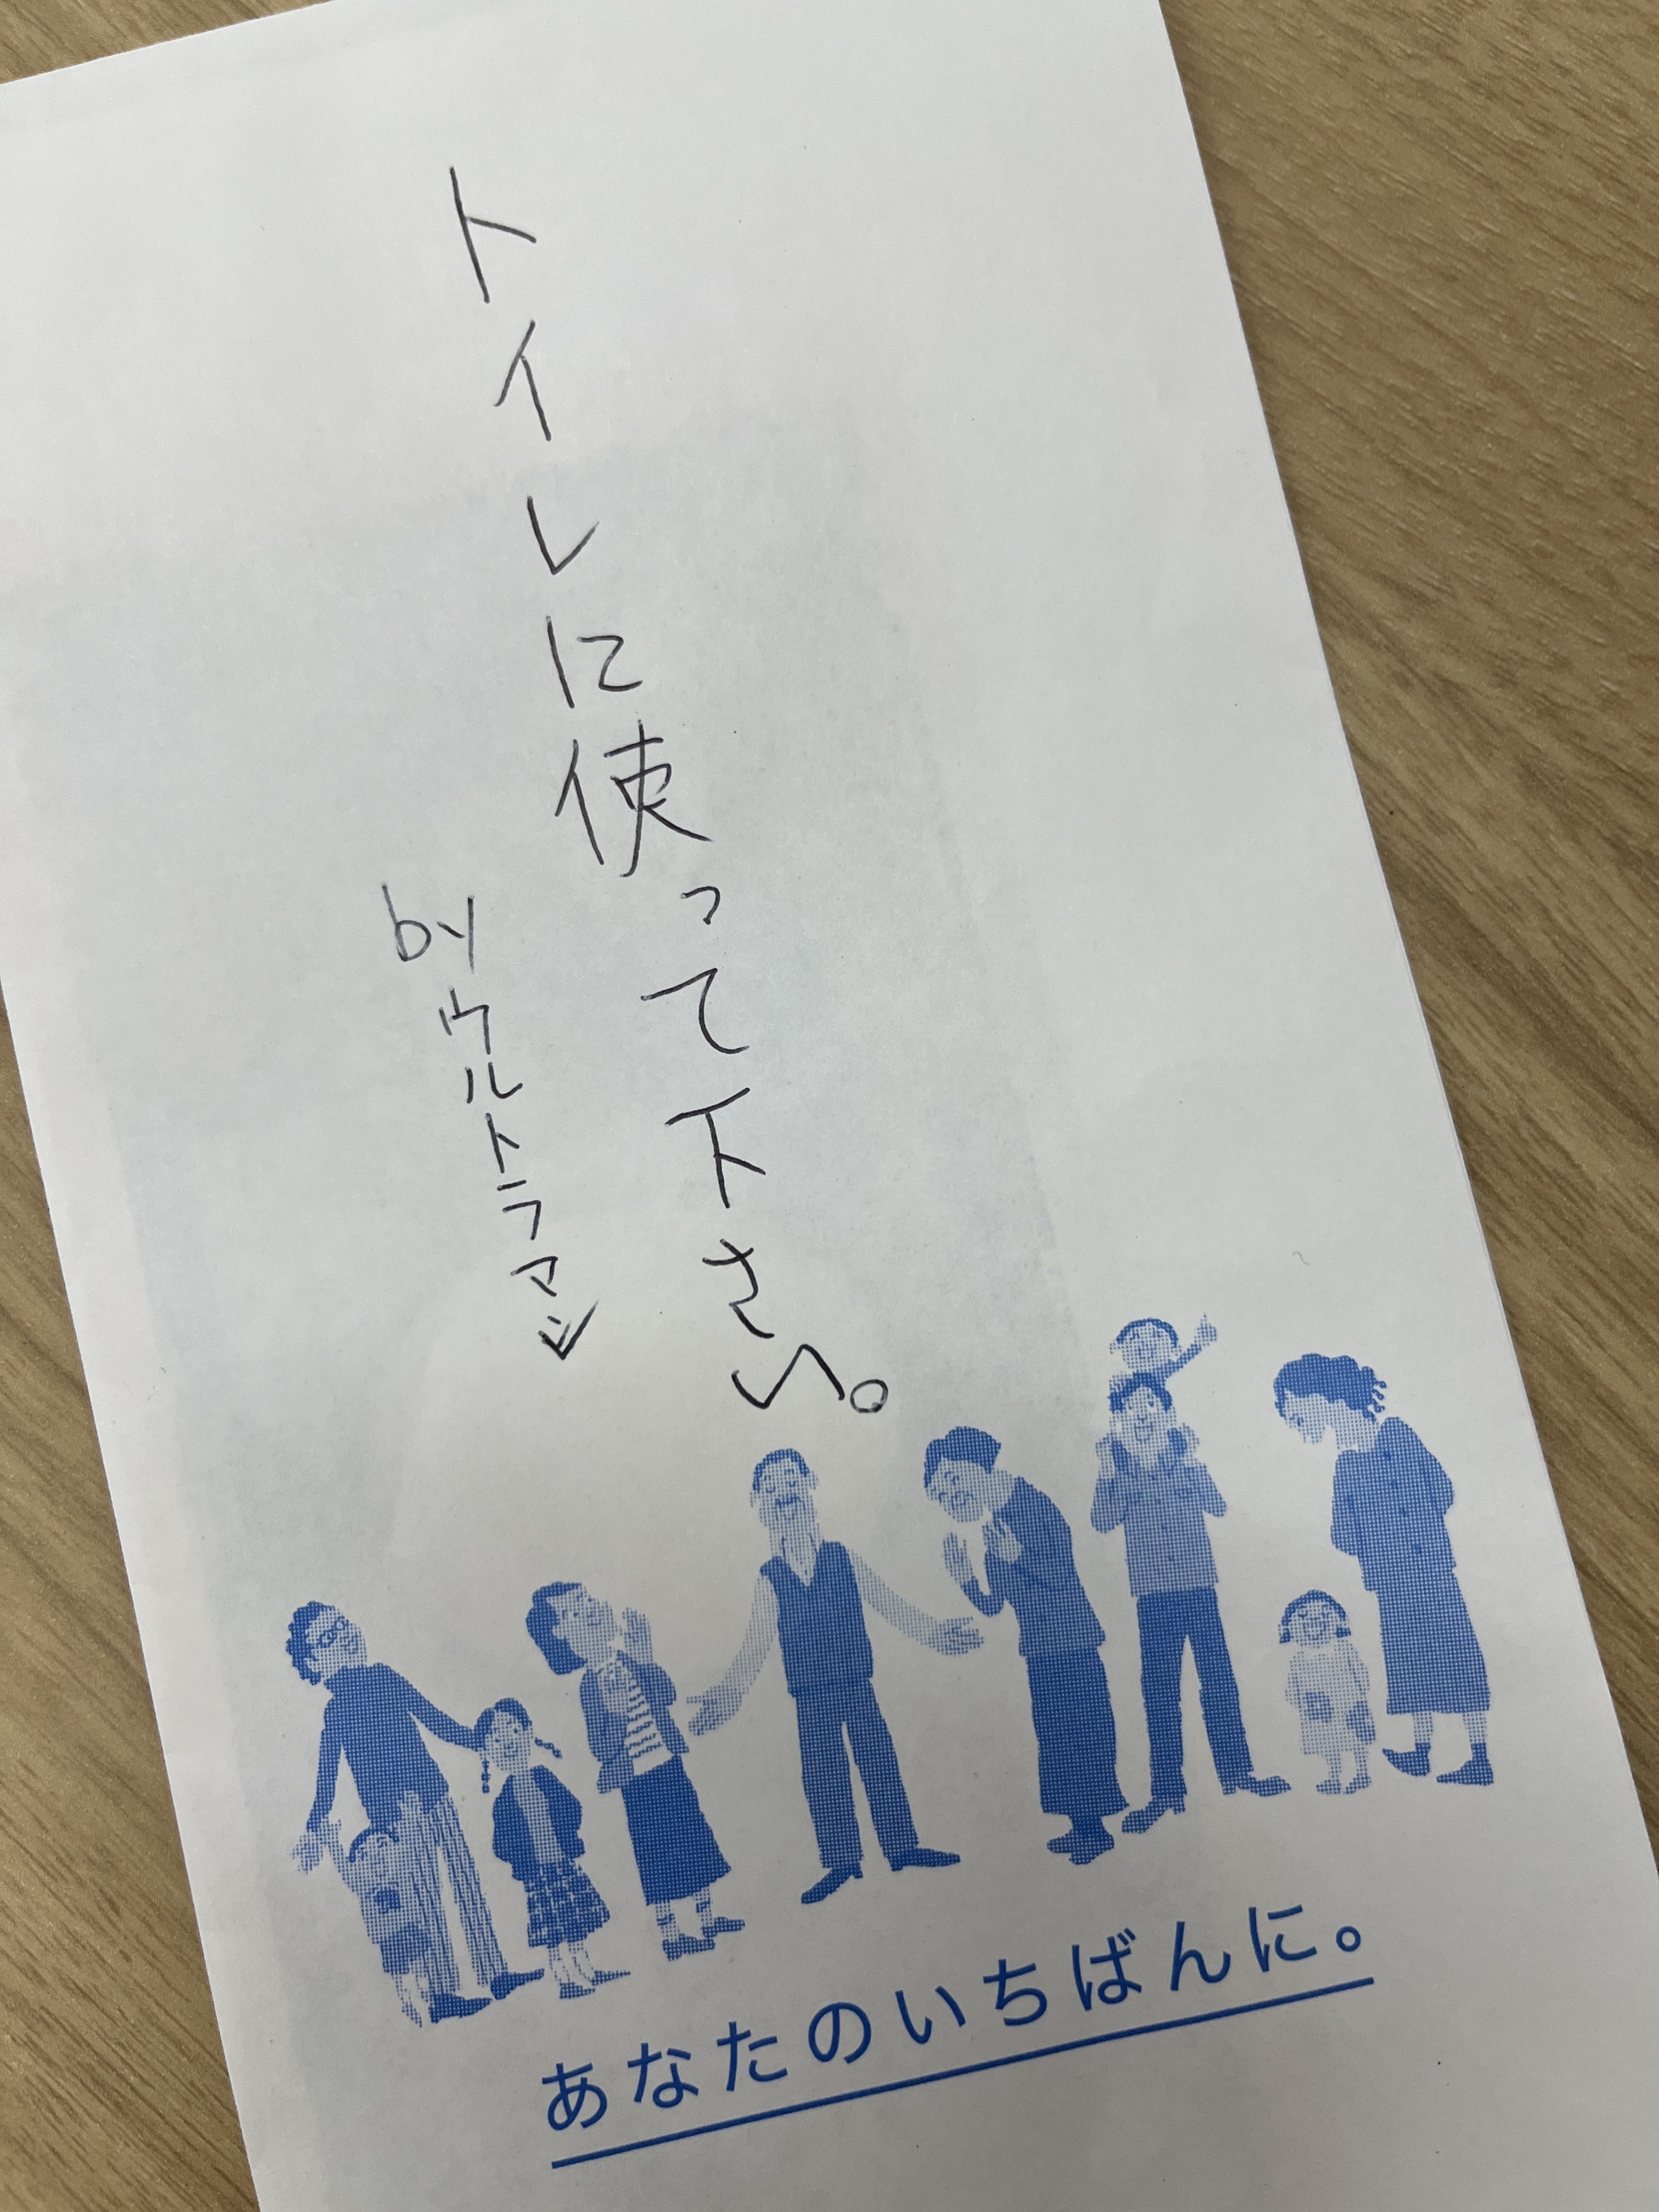 トイレに使って下さい。
byウルトラマン
あなたのいちばんに。